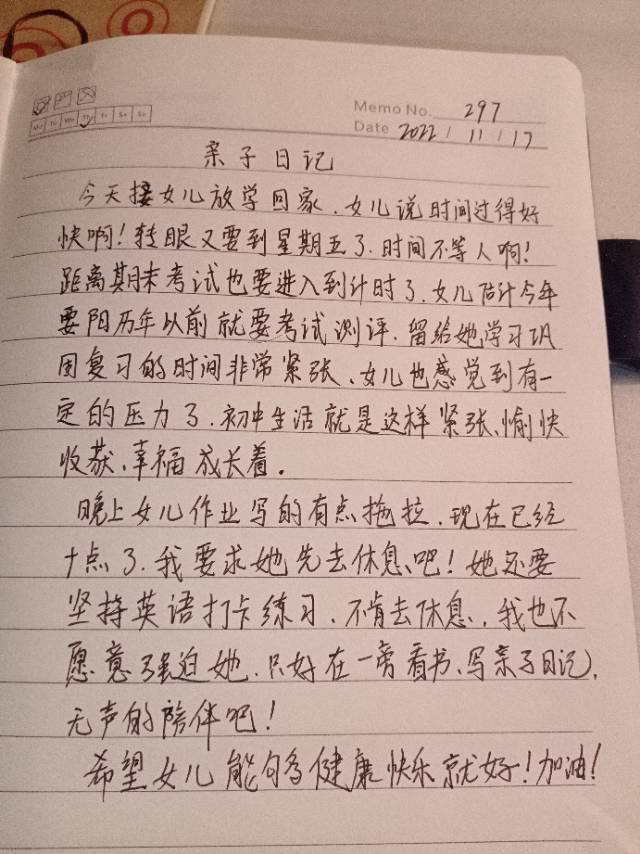 Memo No. 297
Mo Tu We Th Fr Sa Su
Date 2022 / 11 / 17
亲子日记
今天接女儿放学回家、女儿说时间过得好
快啊！转眼又要到星期五了、时间不等人啊！
距离期末考试也要进入到计时了、女儿估计今年
要阳历年以前就要考试测评、留给她学习巩
固复习的时间非常紧张、女儿也感觉到有一
定的压力了、初中生活就是这样紧张、愉快
收获、幸福成长着。
晚上女儿作业写的有点拖拉、现在已经
十点了、我要求她先去休息吧！她还要
坚持英语打卡练习、不肯去休息、我也不
愿意强迫她、只好在一旁看书、写亲子日记，
无声的陪伴吧！
希望女儿能够健康快乐就好！加油！